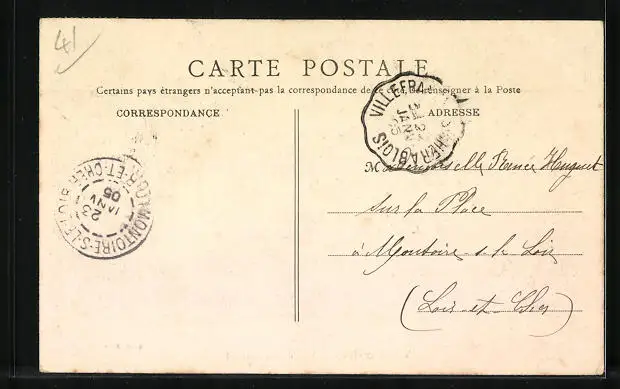 41
CARTE POSTALE
Certains pays étrangers n'acceptant pas la correspondance de ce côté, se renseigner à la Poste
CORRESPONDANCE
ADRESSE
VILLEFRA CHER A BLOIS
MONTOIRE-S-LE-LOIR LOIR-ET-CHER
23
JANV
05
Mademoiselle Renée Huguet
sur la Place
à Montoire s. le Loir
(Loir-et-Cher)